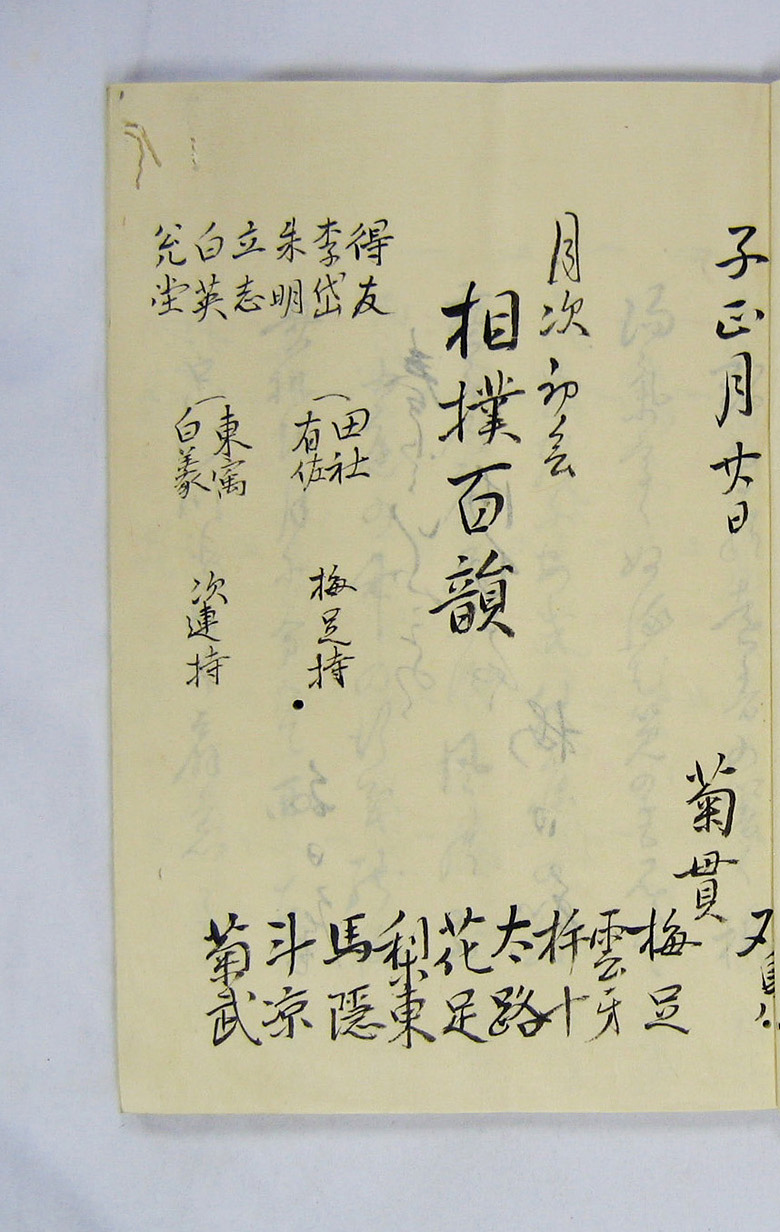 子正月廿日
菊貫
月次初会
相撲百韻
梅足
雲牙
太路
花足
梨東
馬隠
斗凉
菊武
得友
李岱
朱明
立志
白英
田社
有佐
梅足持
東寓
白義
次連持